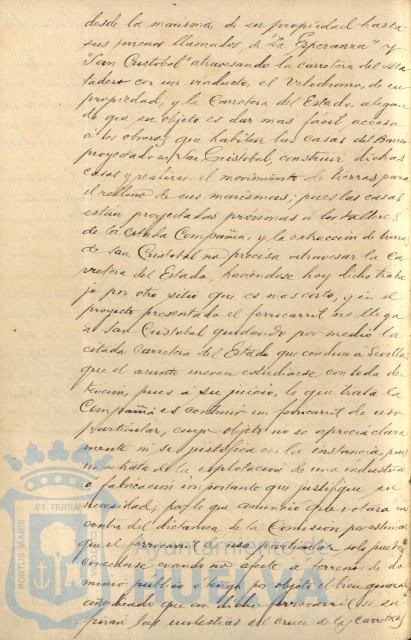 desde la marisma de su propiedad hasta
sus terrenos llamados de "La Esperanza" y
"San Cristobal" atravesando la carretera del Ma
tadero con un viaducto, el Velodromo, de su
propiedad, y la Carretera del Estado, alegan
do que su objeto es dar mas fácil acceso
a los obreros que habiten las casas del Barrio
proyectado en San Cristobal, construir dichas
casas y realizar el movimiento de tierras para
el relleno de sus marismas; pues las casas
están proyectadas proximas á los talleres
de la citada Compañia, y la extracción de tierras
de San Cristobal no precisa atravesar la Ca
rretera del Estado, haciendose hoy dicho traba
jo por otro sitio que es mas corto, y en el
proyecto presentado el ferrocarril no llega
a San Cristobal quedando por medio la
citada Carretera del Estado que conduce a Sevilla
que el asunto merece estudiarse con toda de
tencion, pues á su juicio, lo que trata la
Compañia es construir un ferrocarril de uso
particular, cuyo objeto no se aprecia clara
mente ni se justifica en la instancia, pues
no se trata de la explotación de una industria
o fabricación importante que justifique su
necesidad, por lo que anuncia que votará en
contra del dictamen de la Comision por estimar
que el ferrocarril de uso particular solo puede
concederse cuando no afecte a terreno de do
minio publico y tenga por objeto el bien general
añadiendo que con dicho ferrocarril se su
las molestias del cruce de la carretera
PORTUS MARIS ET TERRAE
Ayuntamiento de
HUELVA